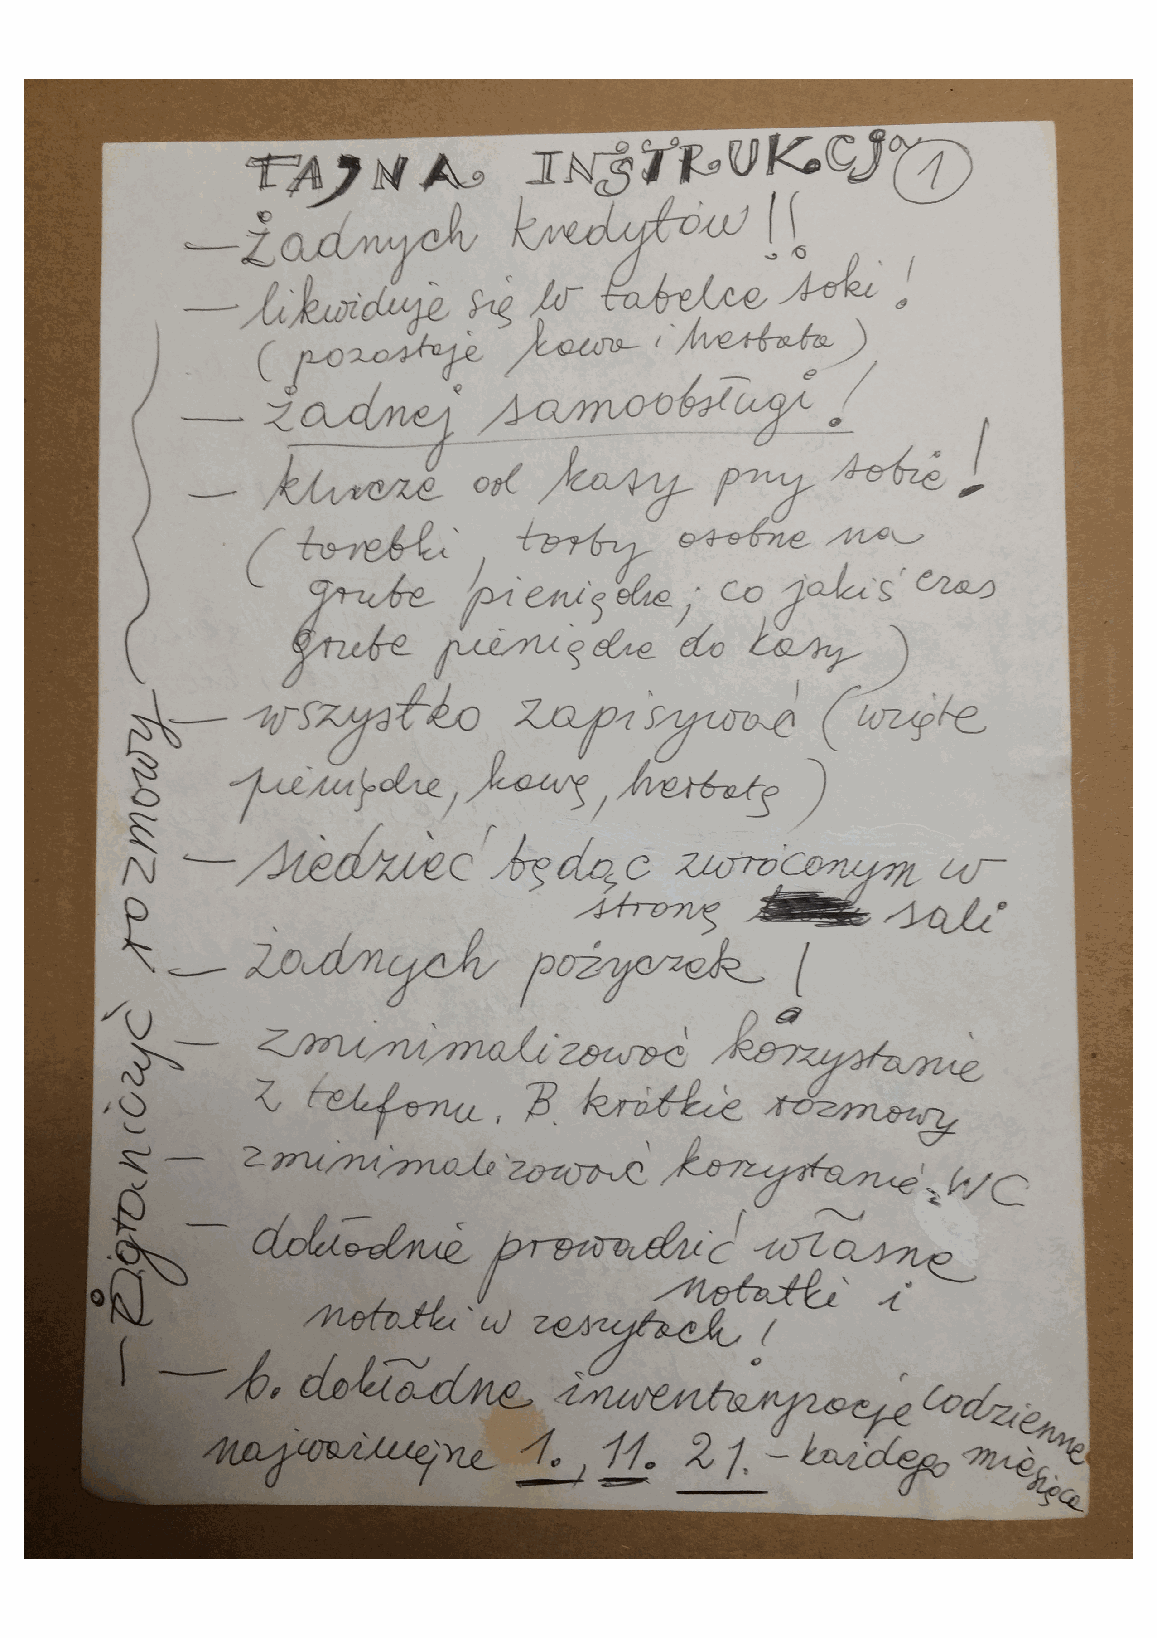 TAJNA INSTRUKCJa 1
— Żadnych kredytów!!
— likwiduje się w tabelce soki!
(pozostaje kawa i herbata)
— żadnej samoobsługi!
— klucze od kasy przy sobie!
(torebki, torby osobne na
grube pieniądze; co jakiś czas
grube pieniądze do kasy)
— wszystko zapisywać (wzięte
pieniądze, kawę, herbatę)
— siedzieć będąc zwróconym w
stronę sali
— żadnych pożyczek!
— zminimalizować korzystanie
z telefonu. B. krótkie rozmowy
— zminimalizować korzystanie z WC
— dokładnie prowadzić własne
notatki i
notatki w zeszytach!
— b. dokładne inwentaryzacje codzienne
najważniejsze 1., 11. 21. – każdego miesiąca
— ograniczyć rozmowy